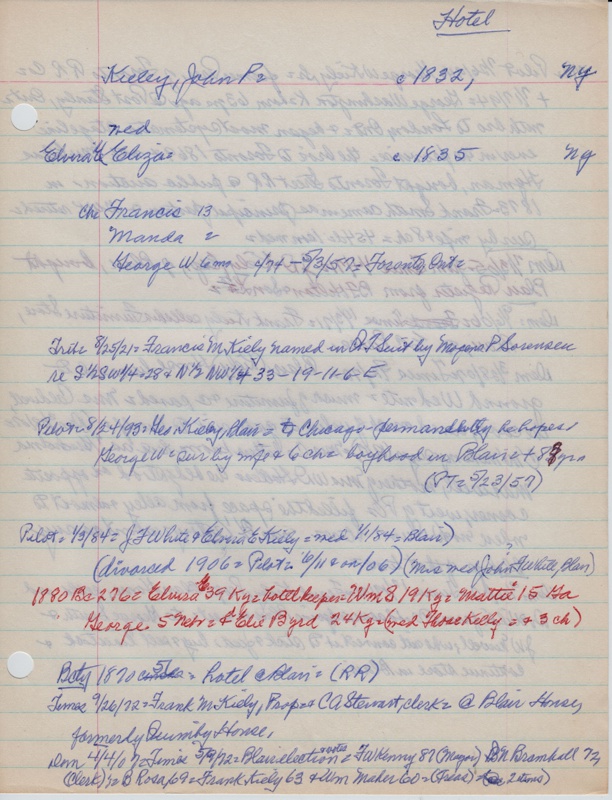 Hotel
Kieley, John P = c 1832, NY
med
Elvira E Eliza = c 1835 NY
Ch: Francis 13
Manda 2
George W 6 mo 4/74 - 5/3/57 = Toronto, Ont =
Trib = 8/25/21 = Francis M Kiely named in QT Suit by P Sorensen
re S½SW¼ = 28 & N½ NW¼ 33 - 19 - 11 - 6 E
Pilot = 8/24/93 = Geo Kiely, Blair = to Chicago - permanently he hopes
George W = sur by mp & 6 ch = boyhood in Blair = + 88 yrs
(PT = 5/23/57)
Pilot = 1/3/84 = J F White & Elvira E Kiely = med 1/1/84 = Blair)
(divorced 1906 = Pilot = 6/11 & on/06) (Mrs med John F White, Blair)
1880 Bc 276 = Elvira E 39 Ky = hotelkeeper = Wm S 19 Ky = Mattie 15 Ga
George 5 Nebr = & Elie Byrd 24 Ky = (med Kelly = + 3 ch)
Bcty 1870 = hotel @ Blair = (RR)
Times 9/26/72 = Frank M Kiely, Prop & CA Stewart, clerk = @ Blair House,
formerly Quimby House,
Dem 4/4/07 = Times 5/9/72 = Blair election votes = FW Kenny 87 (Mayor) BN Bramhall 72
(Clerk) = B Rosa 69 = Frank Kiely 63 & Wm Maher 60 = (Treas) 2 items)